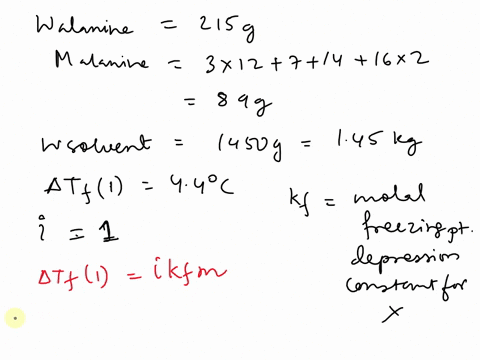 Walanine = 215g
Malanine = 3×12+7+14+16×2
= 89g
Wsolvent = 1450g = 1.45 kg
ΔTf(1) = 4.4°C
i = 1
ΔTf(1) = i kfm
kf = molal
freezing pt.
depression
constant for
X